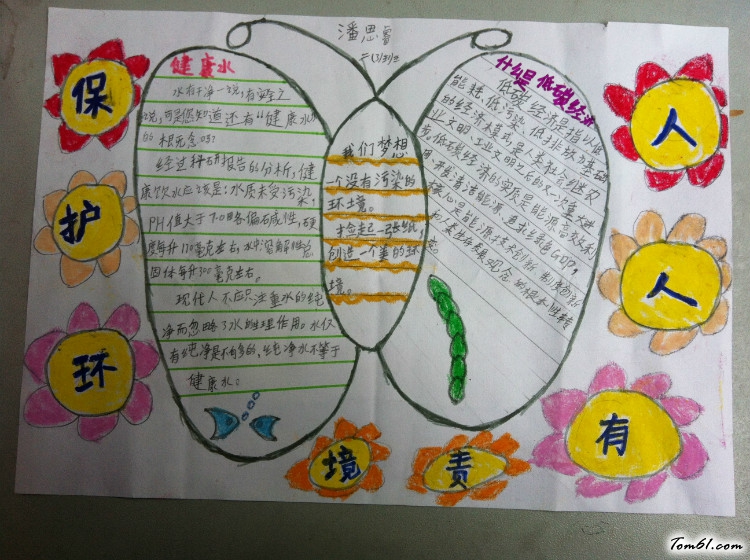 潘思睿
保
护
环
境
责
有
人
人
健康水
水有干净一说,有安全之
说,可是您知道还有“健康水”
的概念吗?
经过科研报告的分析,健
康饮水应该是:水质未受污染,
PH值大于7.0略偏碱性,硬
度每升170毫克左右,水中溶解性总
固体每升300毫克左右。
现代人不应只注重水的纯
净而忽略了水的生理作用。水仅
有纯净是不够的,纯净水不等于
健康水!
我们梦想
一个没有污染的
环境。
捡起一张纸,
创造一个美的环
境。
什么是低碳经济
低碳经济是指以低
能耗、低污染、低排放为基础
的经济模式,是人类社会继农
业文明、工业文明之后的又一次重大进
步。低碳经济的实质是能源高效利
用、开发清洁能源、追求绿色GDP,
核心是能源技术创新、制度创新
和人类生存发展观念的根本性转
变。
Tom61.com